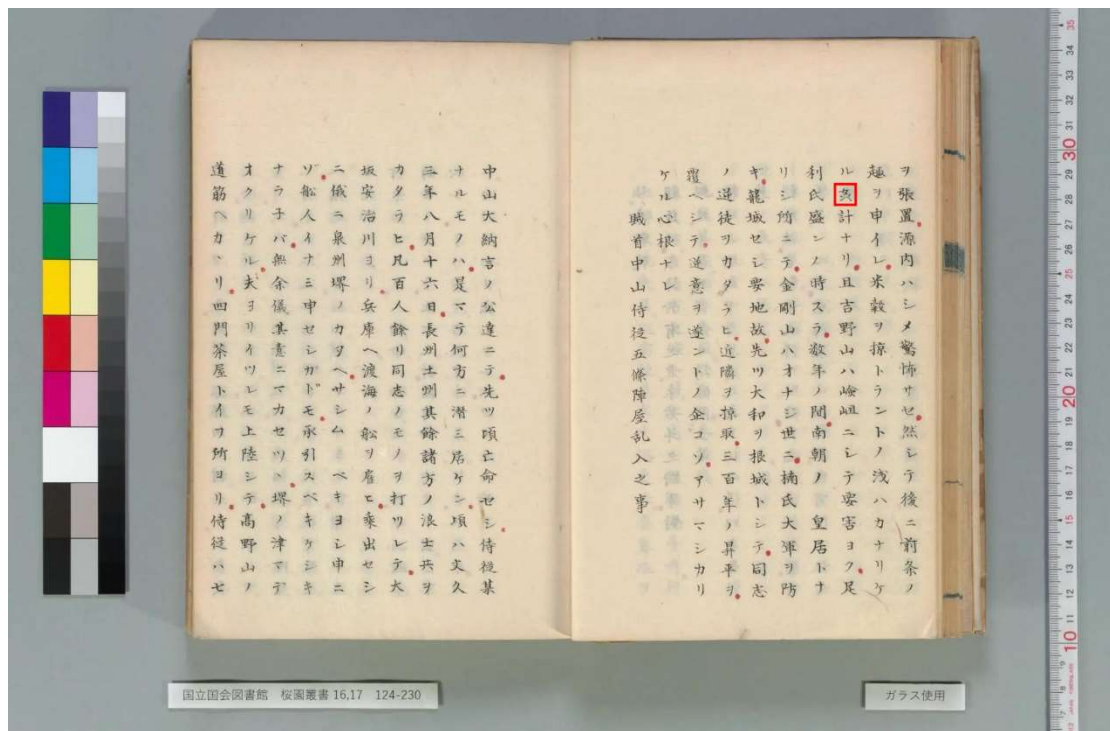 ヲ張置源内ハシメ驚怖サセ然シテ後ニ前条ノ
趣ヲ申イレ米穀ヲ掠トラントノ浅ハカナリケ
ル 計ナリ且吉野山ハ嶮岨ニシテ要害ヨク足
利氏盛ンノ時スラ数年ノ間南朝ノ皇居トナ
リシ所ニテ金剛山ハオナシ世ニ楠氏大軍ヲ防
キ篭城セシ要地故先ツ大和ヲ根城トシテ同志
ノ逆徒ヲカタラヒ近隣ヲ掠取三百年ノ昇平ヲ
覆ヘシテ逆意ヲ遂ントノ企コソアサマシカリ
ケル心根ナレ
賊首中山侍従五條陣屋乱入之事
中山大納言ノ公達ニテ先ツ頃亡命セシ侍従某
ナルモノハ是マテ何方ニ潜ミ居ケン頃ハ文久
三年八月十六日長州土州其餘諸方ノ浪士共ヲ
カタラヒ凡百人餘リ同志ノモノヲ打ツレテ大
坂安治川ヨリ兵庫ヘ渡海ノ船ヲ雇ヒ乗出セシ
ニ俄ニ泉州堺ノカタヘサシムベキヨシ申ニ
ゾ船人イナミ申セシカドモ承引スベキケシキ
ナラ子バ無余儀其意ニマカセツヽ堺ノ津マデ
オクリケル夫ヨリイツレモ上陸シテ高野山ノ
道筋ヘカヽリ四門茶屋トイフ所ヨリ侍従ハ七
国立国会図書館 桜園叢書16,17 124-230
ガラス使用